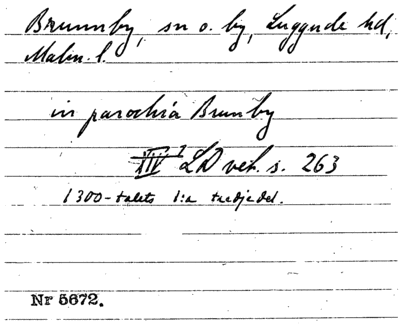 Brunnby, sn o. by, Luggude hd,
Malm. l.
in parochia Brunby
LD vet. s. 263
1300-talets 1:a tredjedel.
Nr 5672.